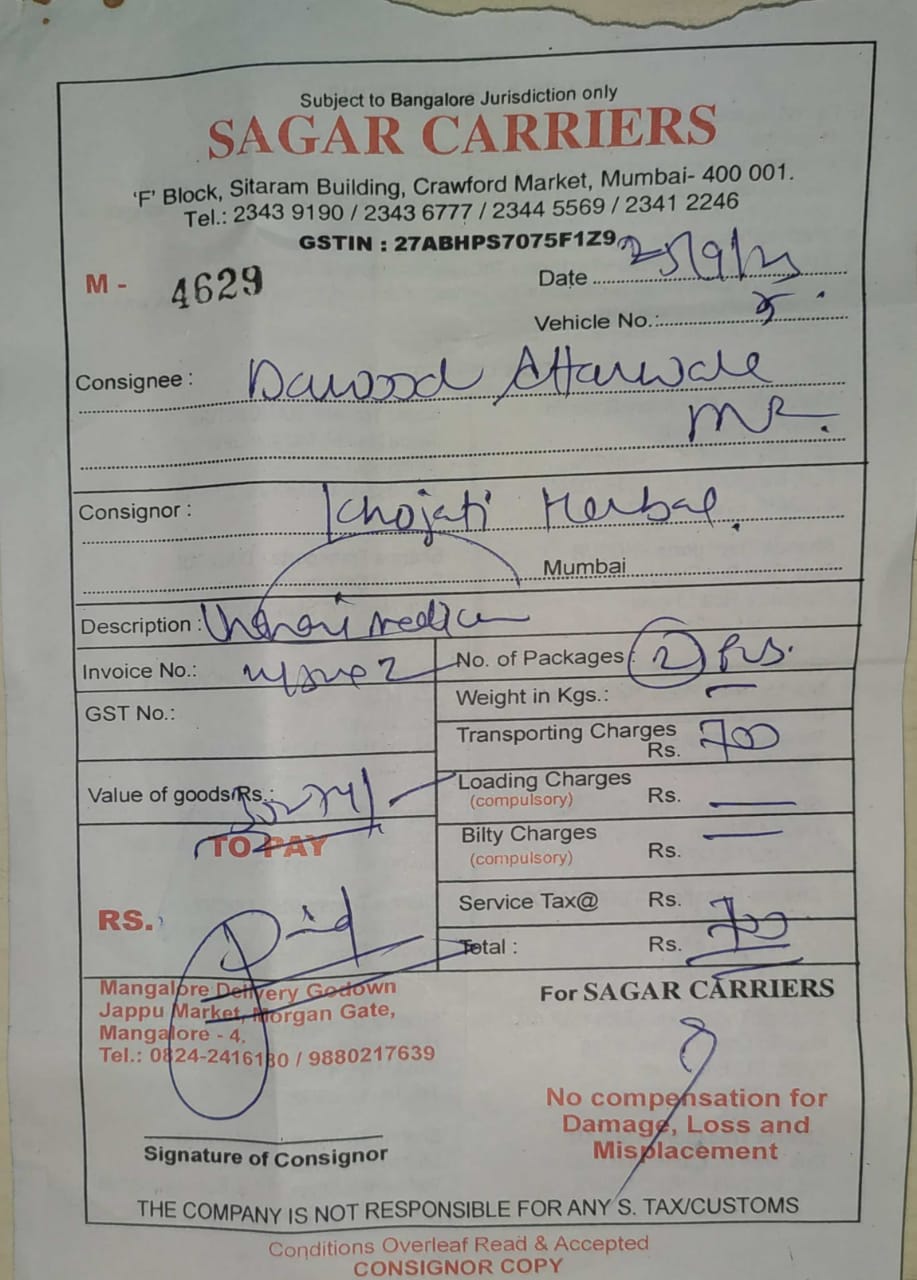 Subject to Bangalore Jurisdiction only
SAGAR CARRIERS
'F' Block, Sitaram Building, Crawford Market, Mumbai- 400 001.
Tel.: 2343 9190 / 2343 6777 / 2344 5569 / 2341 2246
GSTIN : 27ABHPS7075F1Z9
M - 4629
Date
Vehicle No.:
Consignee : Dawood Attarwala
Consignor : Khojati Herbal.
Mumbai
Description :
Invoice No.:
No. of Packages : 2
Weight in Kgs.: —
GST No.:
Transporting Charges
Rs. 700
Value of goods/Rs.:
Loading Charges
(compulsory) Rs. —
Bilty Charges
(compulsory) Rs. —
TO PAY
Service Tax@ Rs.
RS. Paid
Total : Rs. 700
Mangalore Delivery Godown
Jappu Market, Morgan Gate,
Mangalore - 4.
Tel.: 0824-2416130 / 9880217639
For SAGAR CARRIERS
No compensation for
Damage, Loss and
Misplacement
Signature of Consignor
THE COMPANY IS NOT RESPONSIBLE FOR ANY S. TAX/CUSTOMS
Conditions Overleaf Read & Accepted
CONSIGNOR COPY